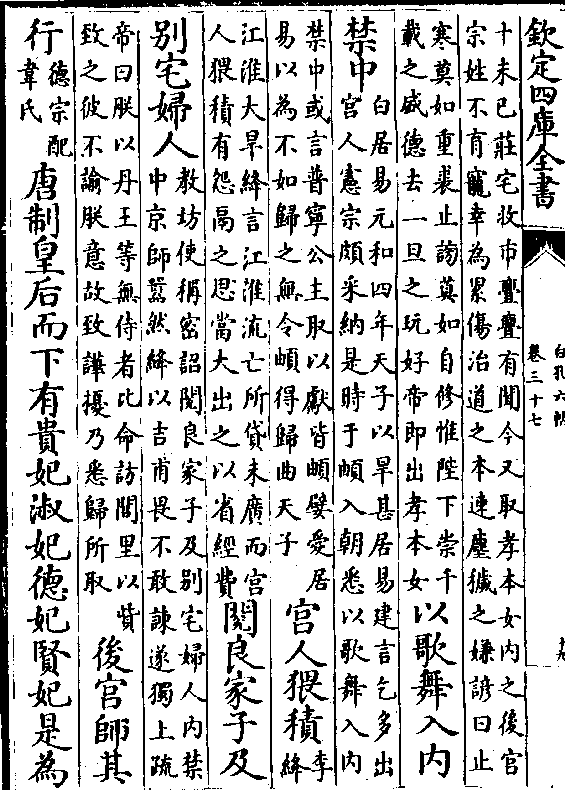 欽定四庫全書
白孔六帖
卷三十七
十九
十未已莊宅收市亹亹有聞今又取孝本女内之後宫
宗姓不育寵幸為累傷治道之本速塵穢之嫌諺曰止
寒莫如重裘止謗莫如自修惟陛下崇千
載之盛德去一旦之玩好帝即出孝本女
以歌舞入内
禁中
白居易元和四年天子以旱甚居易建言乞多出
宫人憲宗頗采納是時于頔入朝悉以歌舞入内
禁中或言普寧公主取以獻皆頔嬖愛居
易以為不如歸之無令頔得歸曲天子
宫人猥積
李
絳
江淮大旱絳言江淮流亡所貸未廣而宫
人猥積有怨鬲之思當大出之以省經費
閲良家子及
别宅婦人
教坊使稱密詔閲良家子及别宅婦人内禁
中京師囂然絳以吉甫畏不敢諫遂獨上疏
帝曰朕以丹王等無侍者比命訪閭里以貲
致之彼不諭朕意故致譁擾乃悉歸所取
後宫師其
行
德宗配
韋氏
唐制皇后而下有貴妃淑妃德妃賢妃是為